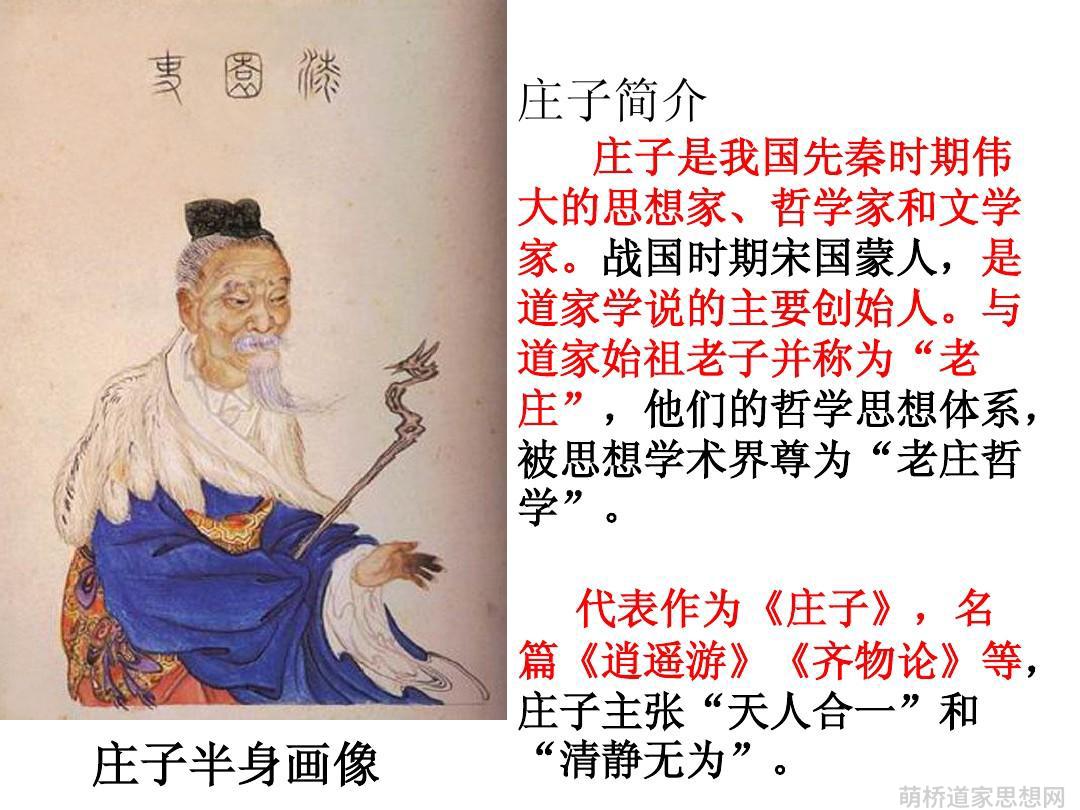 漆园吏
庄子简介
庄子是我国先秦时期伟
大的思想家、哲学家和文学
家。战国时期宋国蒙人，是
道家学说的主要创始人。与
道家始祖老子并称为“老
庄”，他们的哲学思想体系，
被思想学术界尊为“老庄哲
学”。
代表作为《庄子》，名
篇《逍遥游》《齐物论》等，
庄子主张“天人合一”和
“清静无为”。
庄子半身画像
萌桥道家思想网